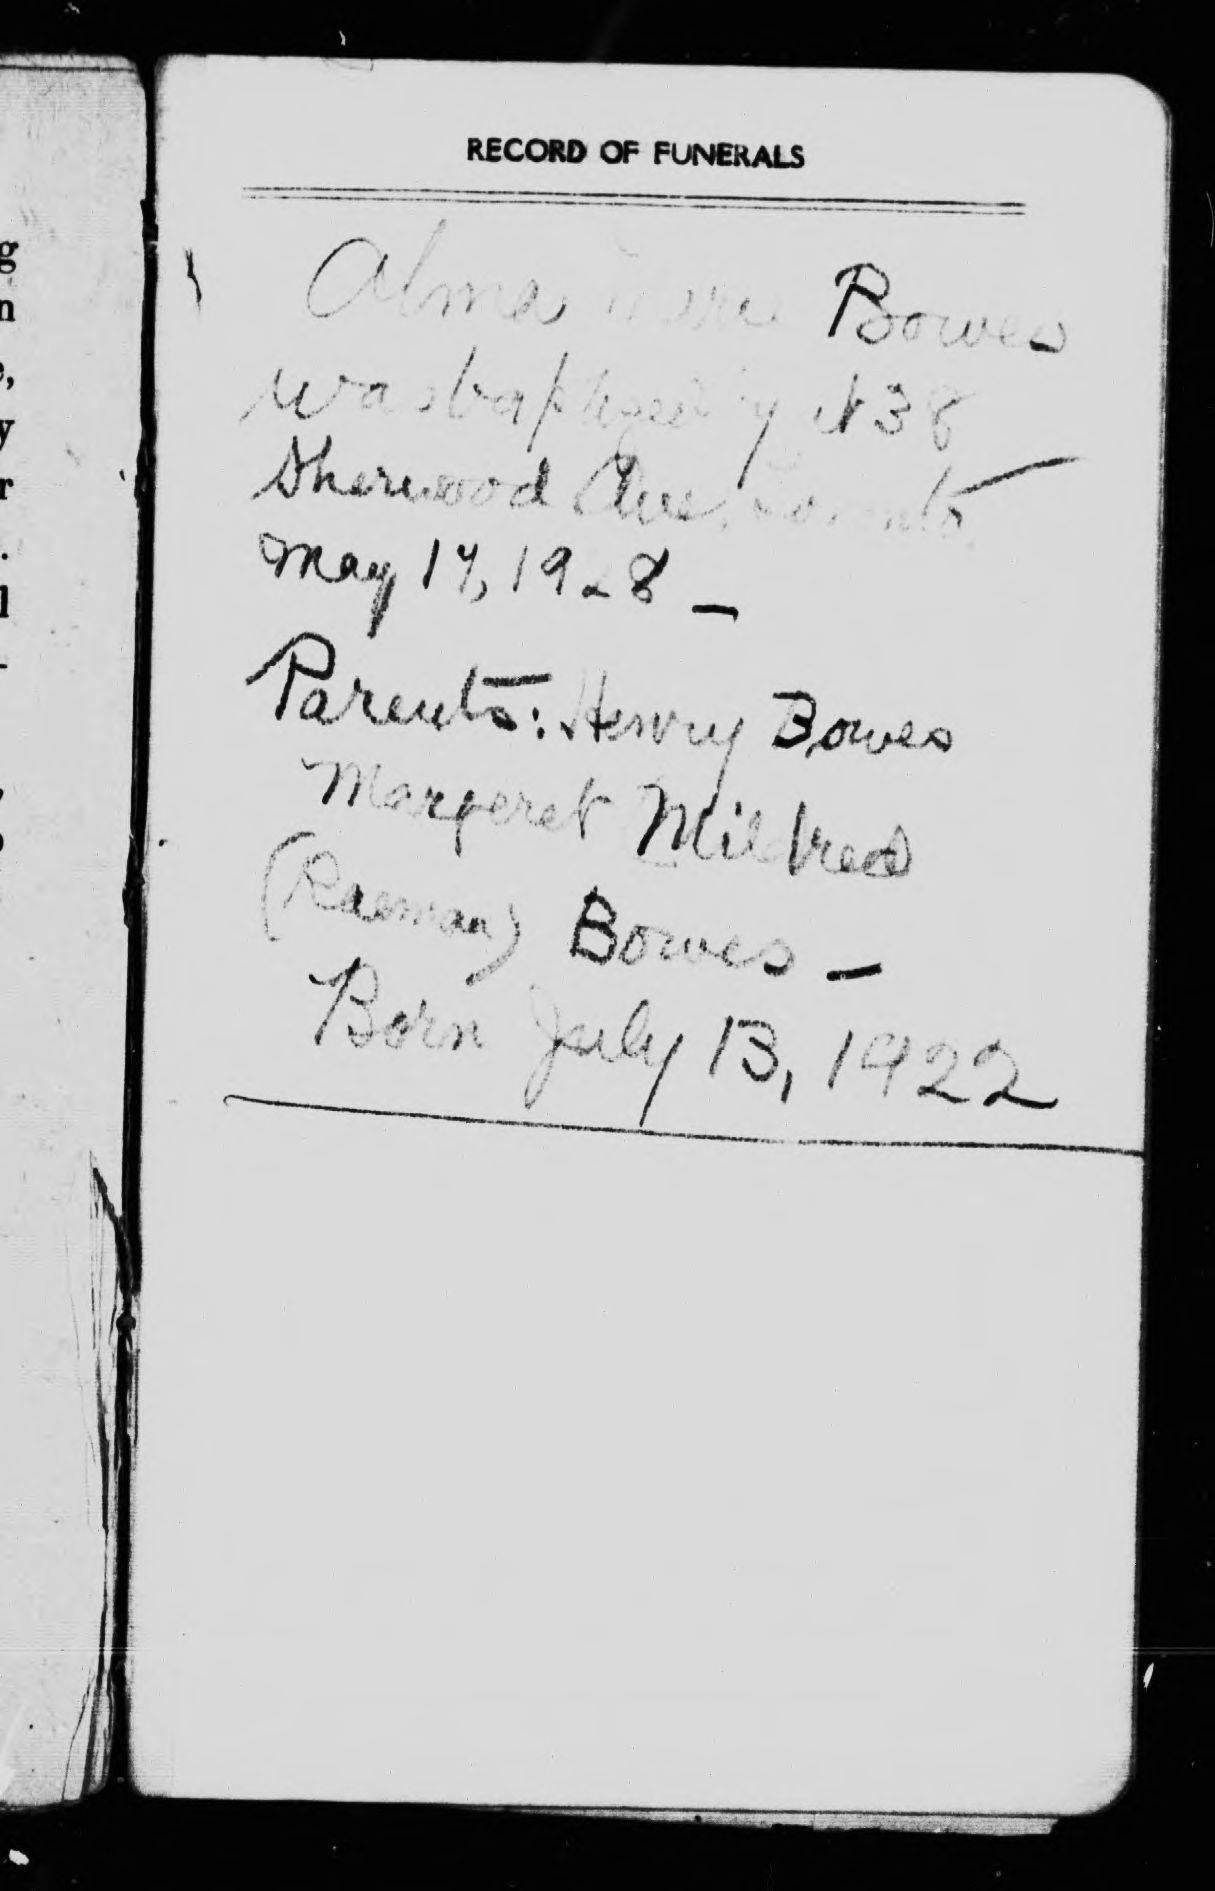 RECORD OF FUNERALS
Alma Bowes
was baptized at 38
Sherwood Ave. Toronto.
May 17, 1928 —
Parents: Henry Bowes
Margeret Mildred
(Raeman) Bowes —
Born July 13, 1922
g
n
,
y
r
.
l